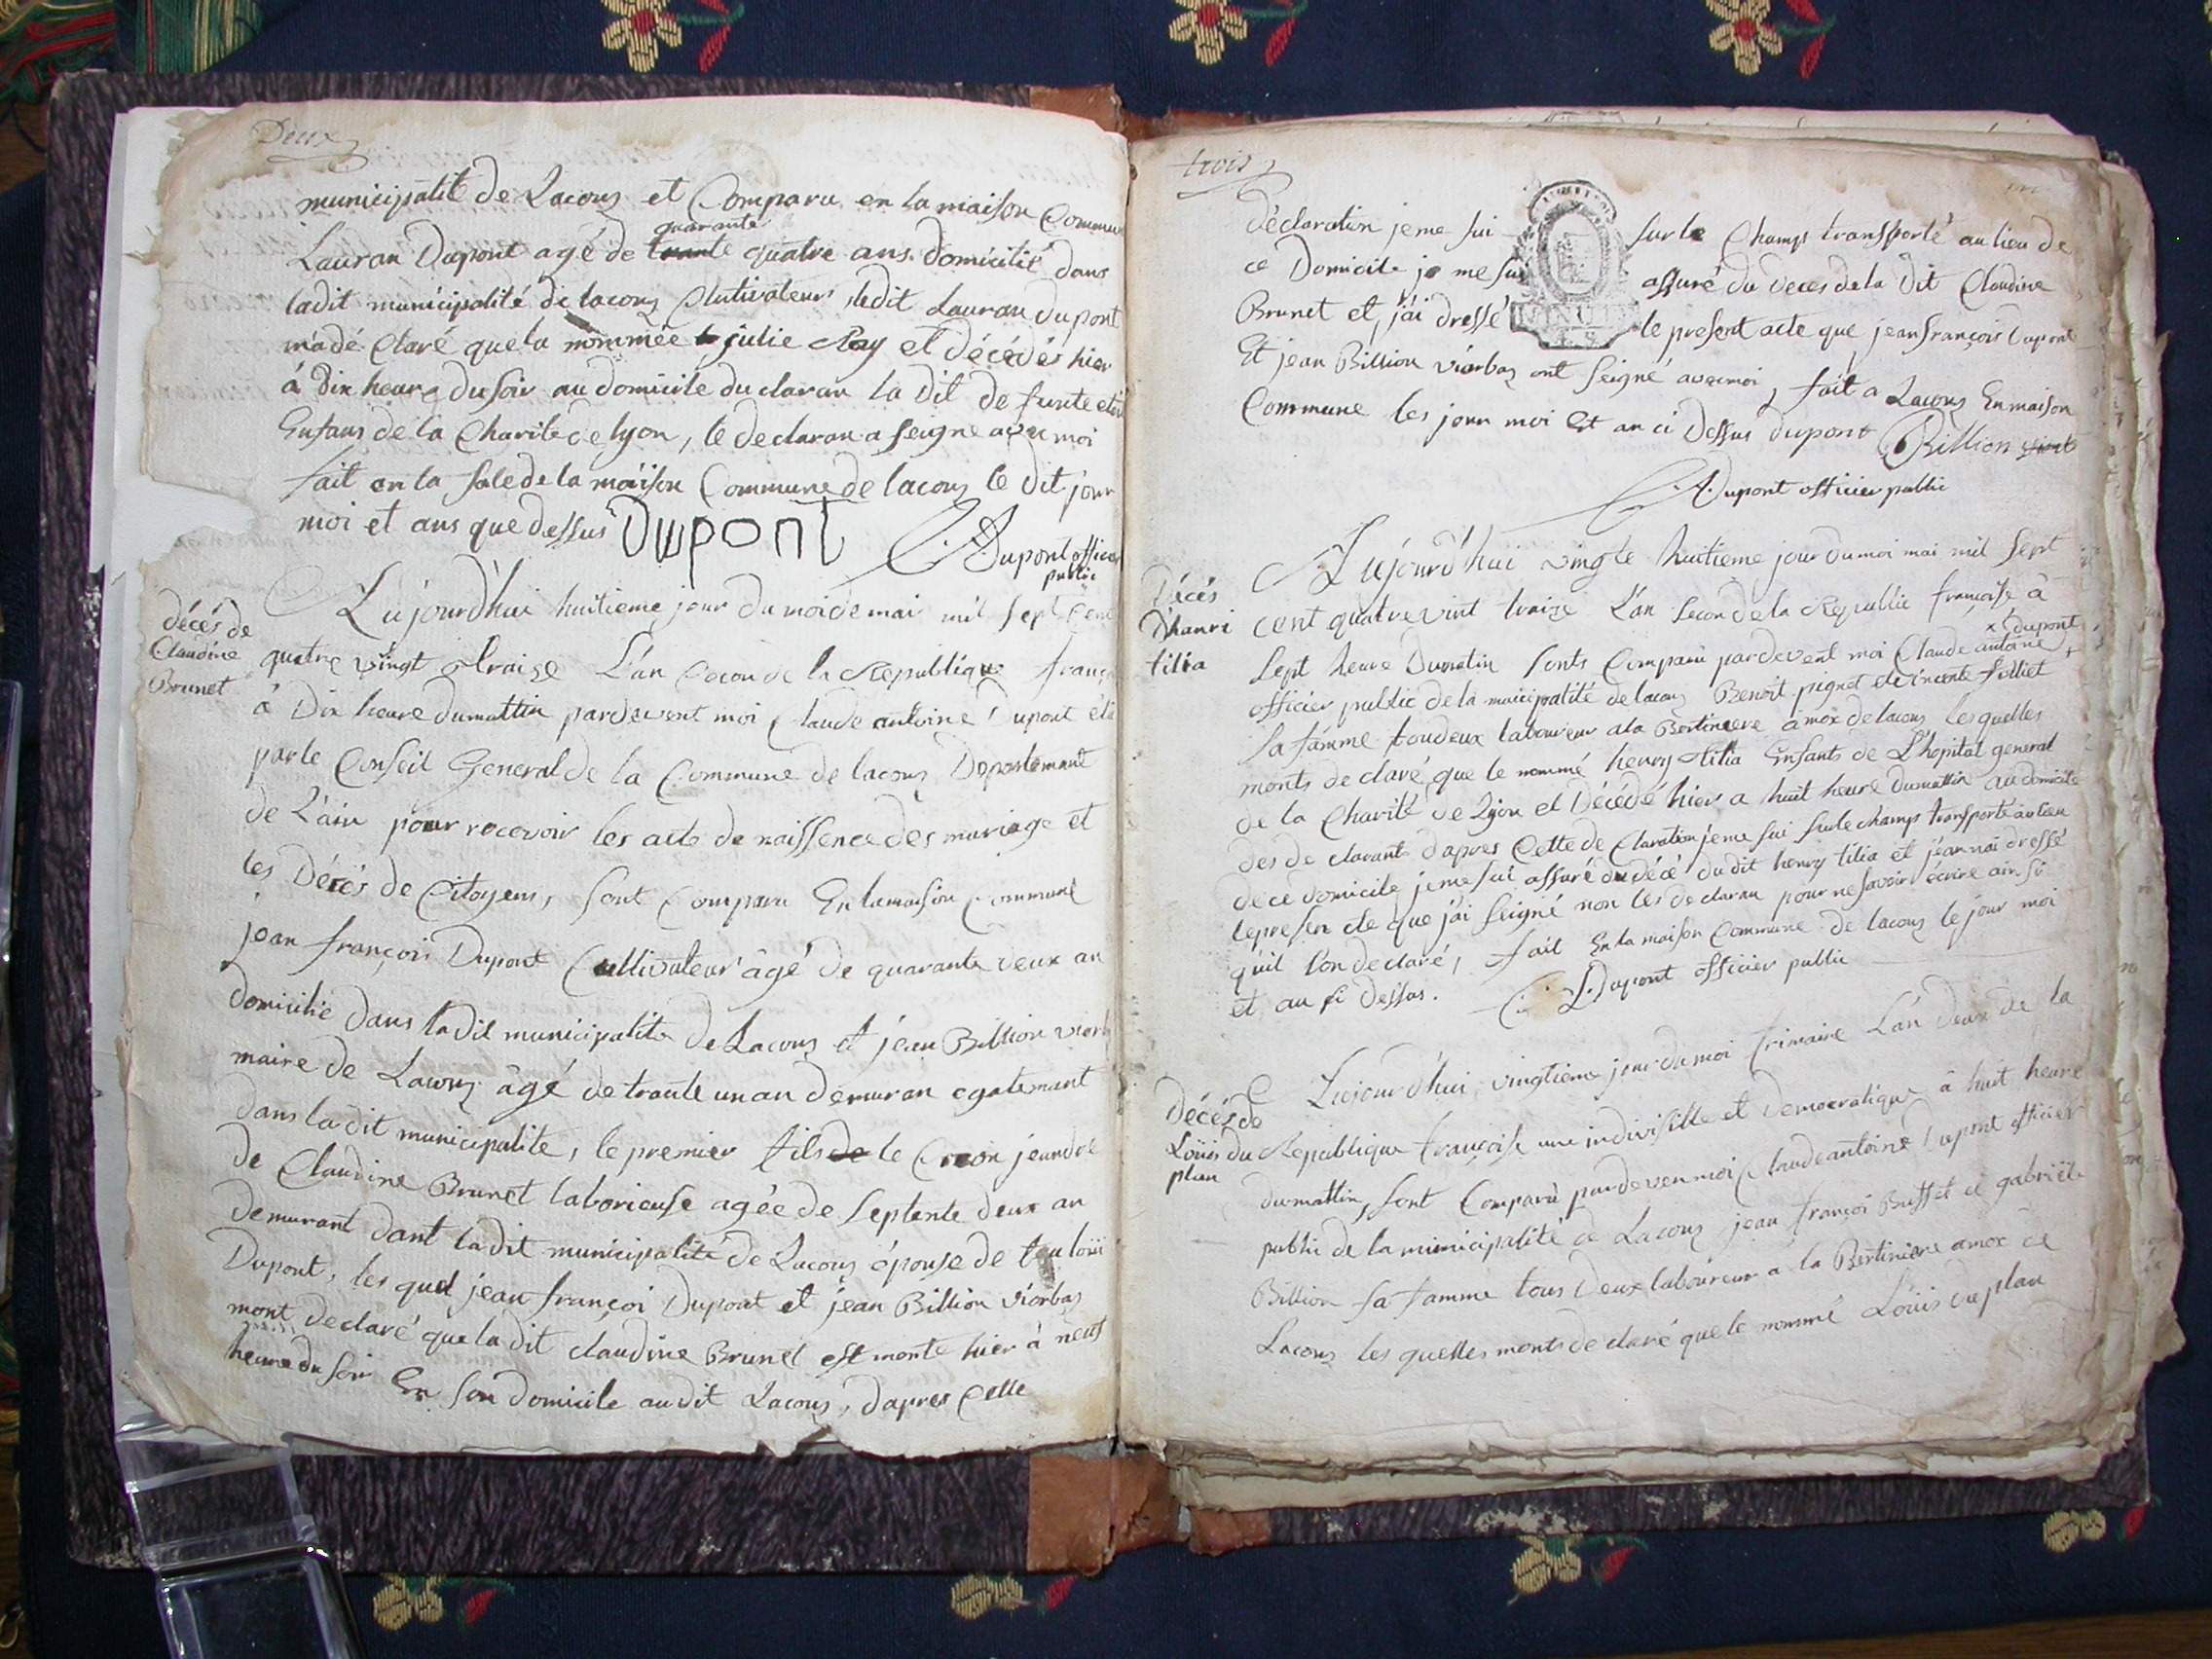 Deux
municipalité de Lacoux et Comparu en la maison Commun
Lauran Dupont agé de trante quarante quatre ans domicilié dans
ladit municipalité de lacoux Clutivateur ledit Lauran Dupont
m'adé Claré que la nommée julie Ray et décédés hier
à Dix heure du soir au domicile du claran la Dit de funte
Enfans de la Charité de lyon, le declaran a seigné avec moi
fait en la sale de la maison Commune de lacoux le dit jour
moi et ans que dessus Dupont C. A. Dupont officier
public
décés de
Claudine
Brunet
Aujourd'hui huitieme jour du moi de mai mil sept cent
quatre vingt traise L'an secon de la Republique franç
à Dix heure du mattin pardevent moi Claude antoine Dupont élu
par le Conseil General de la Commune de lacoux Departemant
de L'ain pour recevoir les acte de naissence des mariage et
les Décés de Citoyens, sont Comparu En la maison Commune
jean françois Dupont Cultivateur âgé de quarante deux an
domicilié dans ladit municipalité de Lacoux et jean Billion viorb
maire de Lacoux âgé de trante un an demuran egalemant
dans ladit municipalité, le premier fils de le
de Claudine Brunet laborieuse agée de septente deux an
demurant dant ladit municipalité de Lacoux épouse de
Dupont, les quel jean françoi Dupont et jean Billion viorbas
mont declaré que la dit claudine Brunet est morte hier à neuf
heure du soir En son domicile audit Lacoux, d'apres Cette
trois
déclaration je me sui sur le Champs transporté au lieu de
ce Domicile je me sui assuré du deces de la Dit Claudine
Brunet et j'ai dressé le present acte que jean françois Dupont
Et jean Billion viorbas ont seigné avec moi, fait a Lacoux En maison
Commune les jour moi Et an ci Dessus dupont Billion
C. A. Dupont officier public
Décés
D'hanri
tilia
Aujourd'hui vingte huitieme jour du moi mai mil sept
cent quatre vint traize L'an second de la Republic françoise à
sept heure Dumatin sonts Comparu pardevent moi Claude antoine Dupont
officier public de la municipalité de lacoux Benoit pignet et vincente folliet
sa famme toudeux laboureur a la Bertiniere amox de lacoux lesquelles
monts declaré que le nommé henry tilia Enfants de L'hopital general
de la Charité de Lyon et Décédé hier a huit heure dumattin au domicile
des de clarants d'apres Cette de Claration je me sui sur le champs transporté au lieu
de ce domicile je me sui assuré du décé du dit henry tilia et j'ean nai dressé
le presen cte que j'ai seigné non les declaran pour ne savoir écrire ain si
qu'il l'on declaré, fait En la maison Commune de lacoux le jour moi
et an si dessus. C. A. Dupont officier public
décés de
Loüis du
plan
Aujourd'hui vingtieme jour du moi frimaire L'an deux de la
Republique françoise une indivisible et democratique à huit heure
dumattin, sont Comparu pardeven moi Claude antoine Dupont officier
public de la municipalité de Lacoux jean françoi Buffet et gabriële
Billion sa famme tous deux laboureur a la Bertiniere amox de
Lacoux les quelles monts declaré que le nommé Loüis duplan